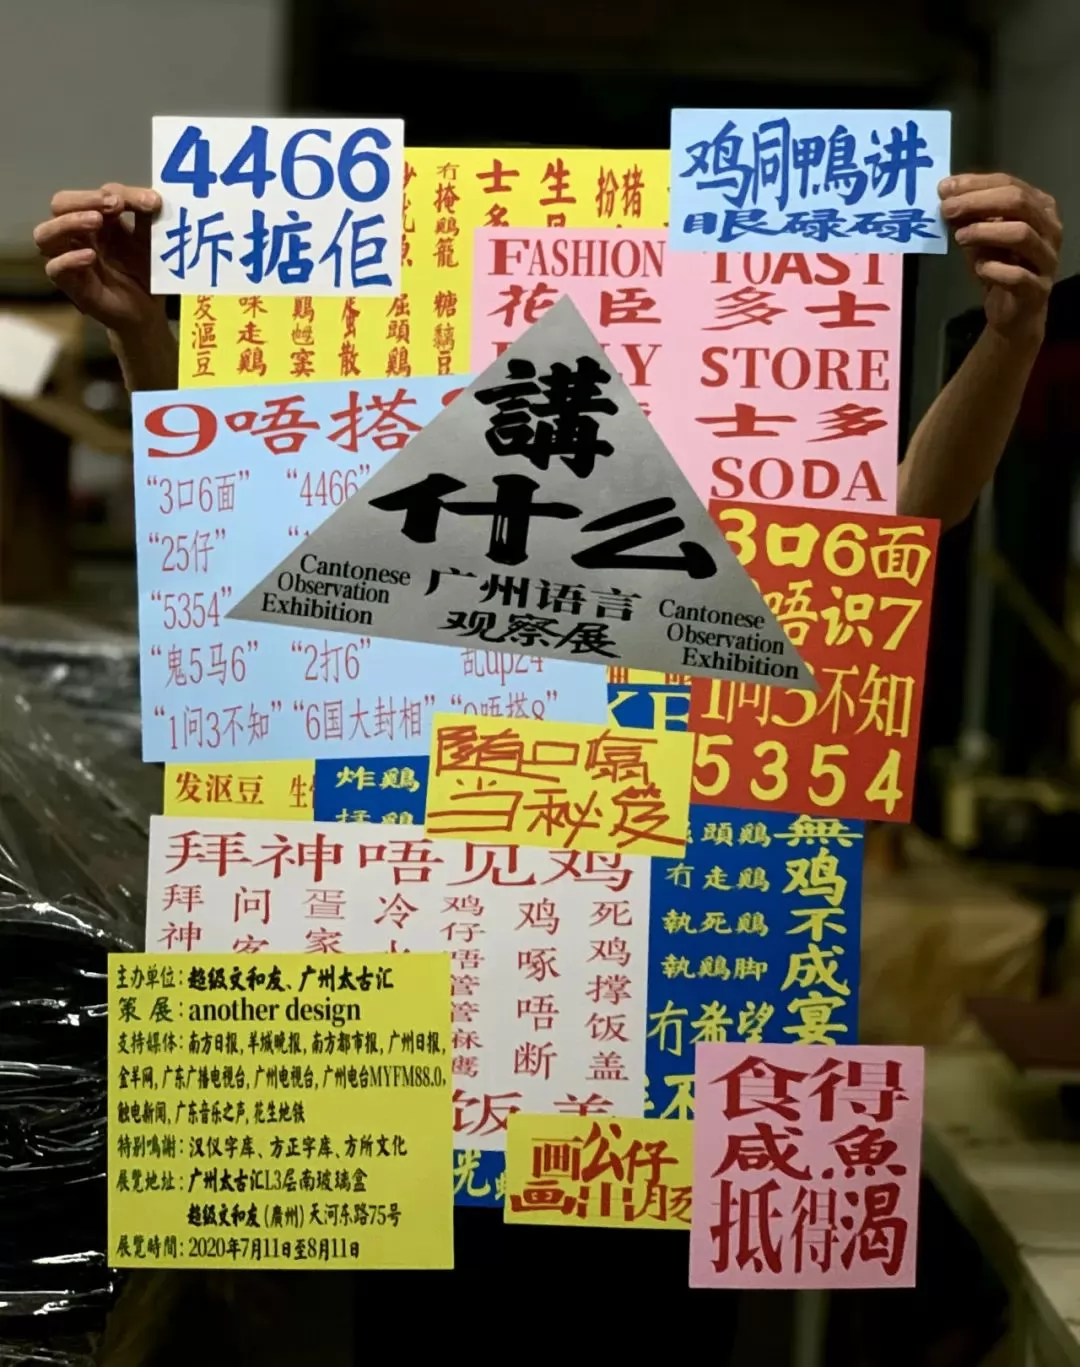 4466
拆掂佢
鸡同鴨讲
眼碌碌
冇掩鷄籠
士多
生
扮猪
发漚豆
咪走鷄
鷄乸窦
蛋散
屈頭鷄
糖黐豆
FASHION
花臣
TOAST
多士
STORE
士多
SODA
9唔搭
“3口6面”
“4466”
“25仔”
“5354”
“鬼5马6”
“2打6”
乱up24
“1问3不知”
“6国大封相”
“9唔搭8”
講
什么
广州语言
观察展
Cantonese
Observation
Exhibition
Cantonese
Observation
Exhibition
3口6面
唔识7
1问3不知
5354
发沤豆
炸鷄
隨口噏
当秘笈
拜神唔见鸡
拜神
问客
疍家
冷
鸡仔唔管管麻鹰
鸡啄唔断
死鸡撑饭盖
饭盖
屈頭鷄
冇走鷄
執死鷄
執鷄脚
冇希望
無鸡不成宴
主办单位：超级文和友、广州太古汇
策展：another design
支持媒体：南方日报，羊城晚报，南方都市报，广州日报，
金羊网，广东广播电视台，广州电视台，广州电台MYFM88.0，
触电新闻，广东音乐之声，花生地铁
特别鳴謝：汉仪字库、方正字库、方所文化
展覽地址：广州太古汇L3层南玻璃盒
超级文和友（廣州）天河东路75号
展覽時間：2020年7月11日至8月11日
画公仔
画出肠
食得
咸魚
抵得渴